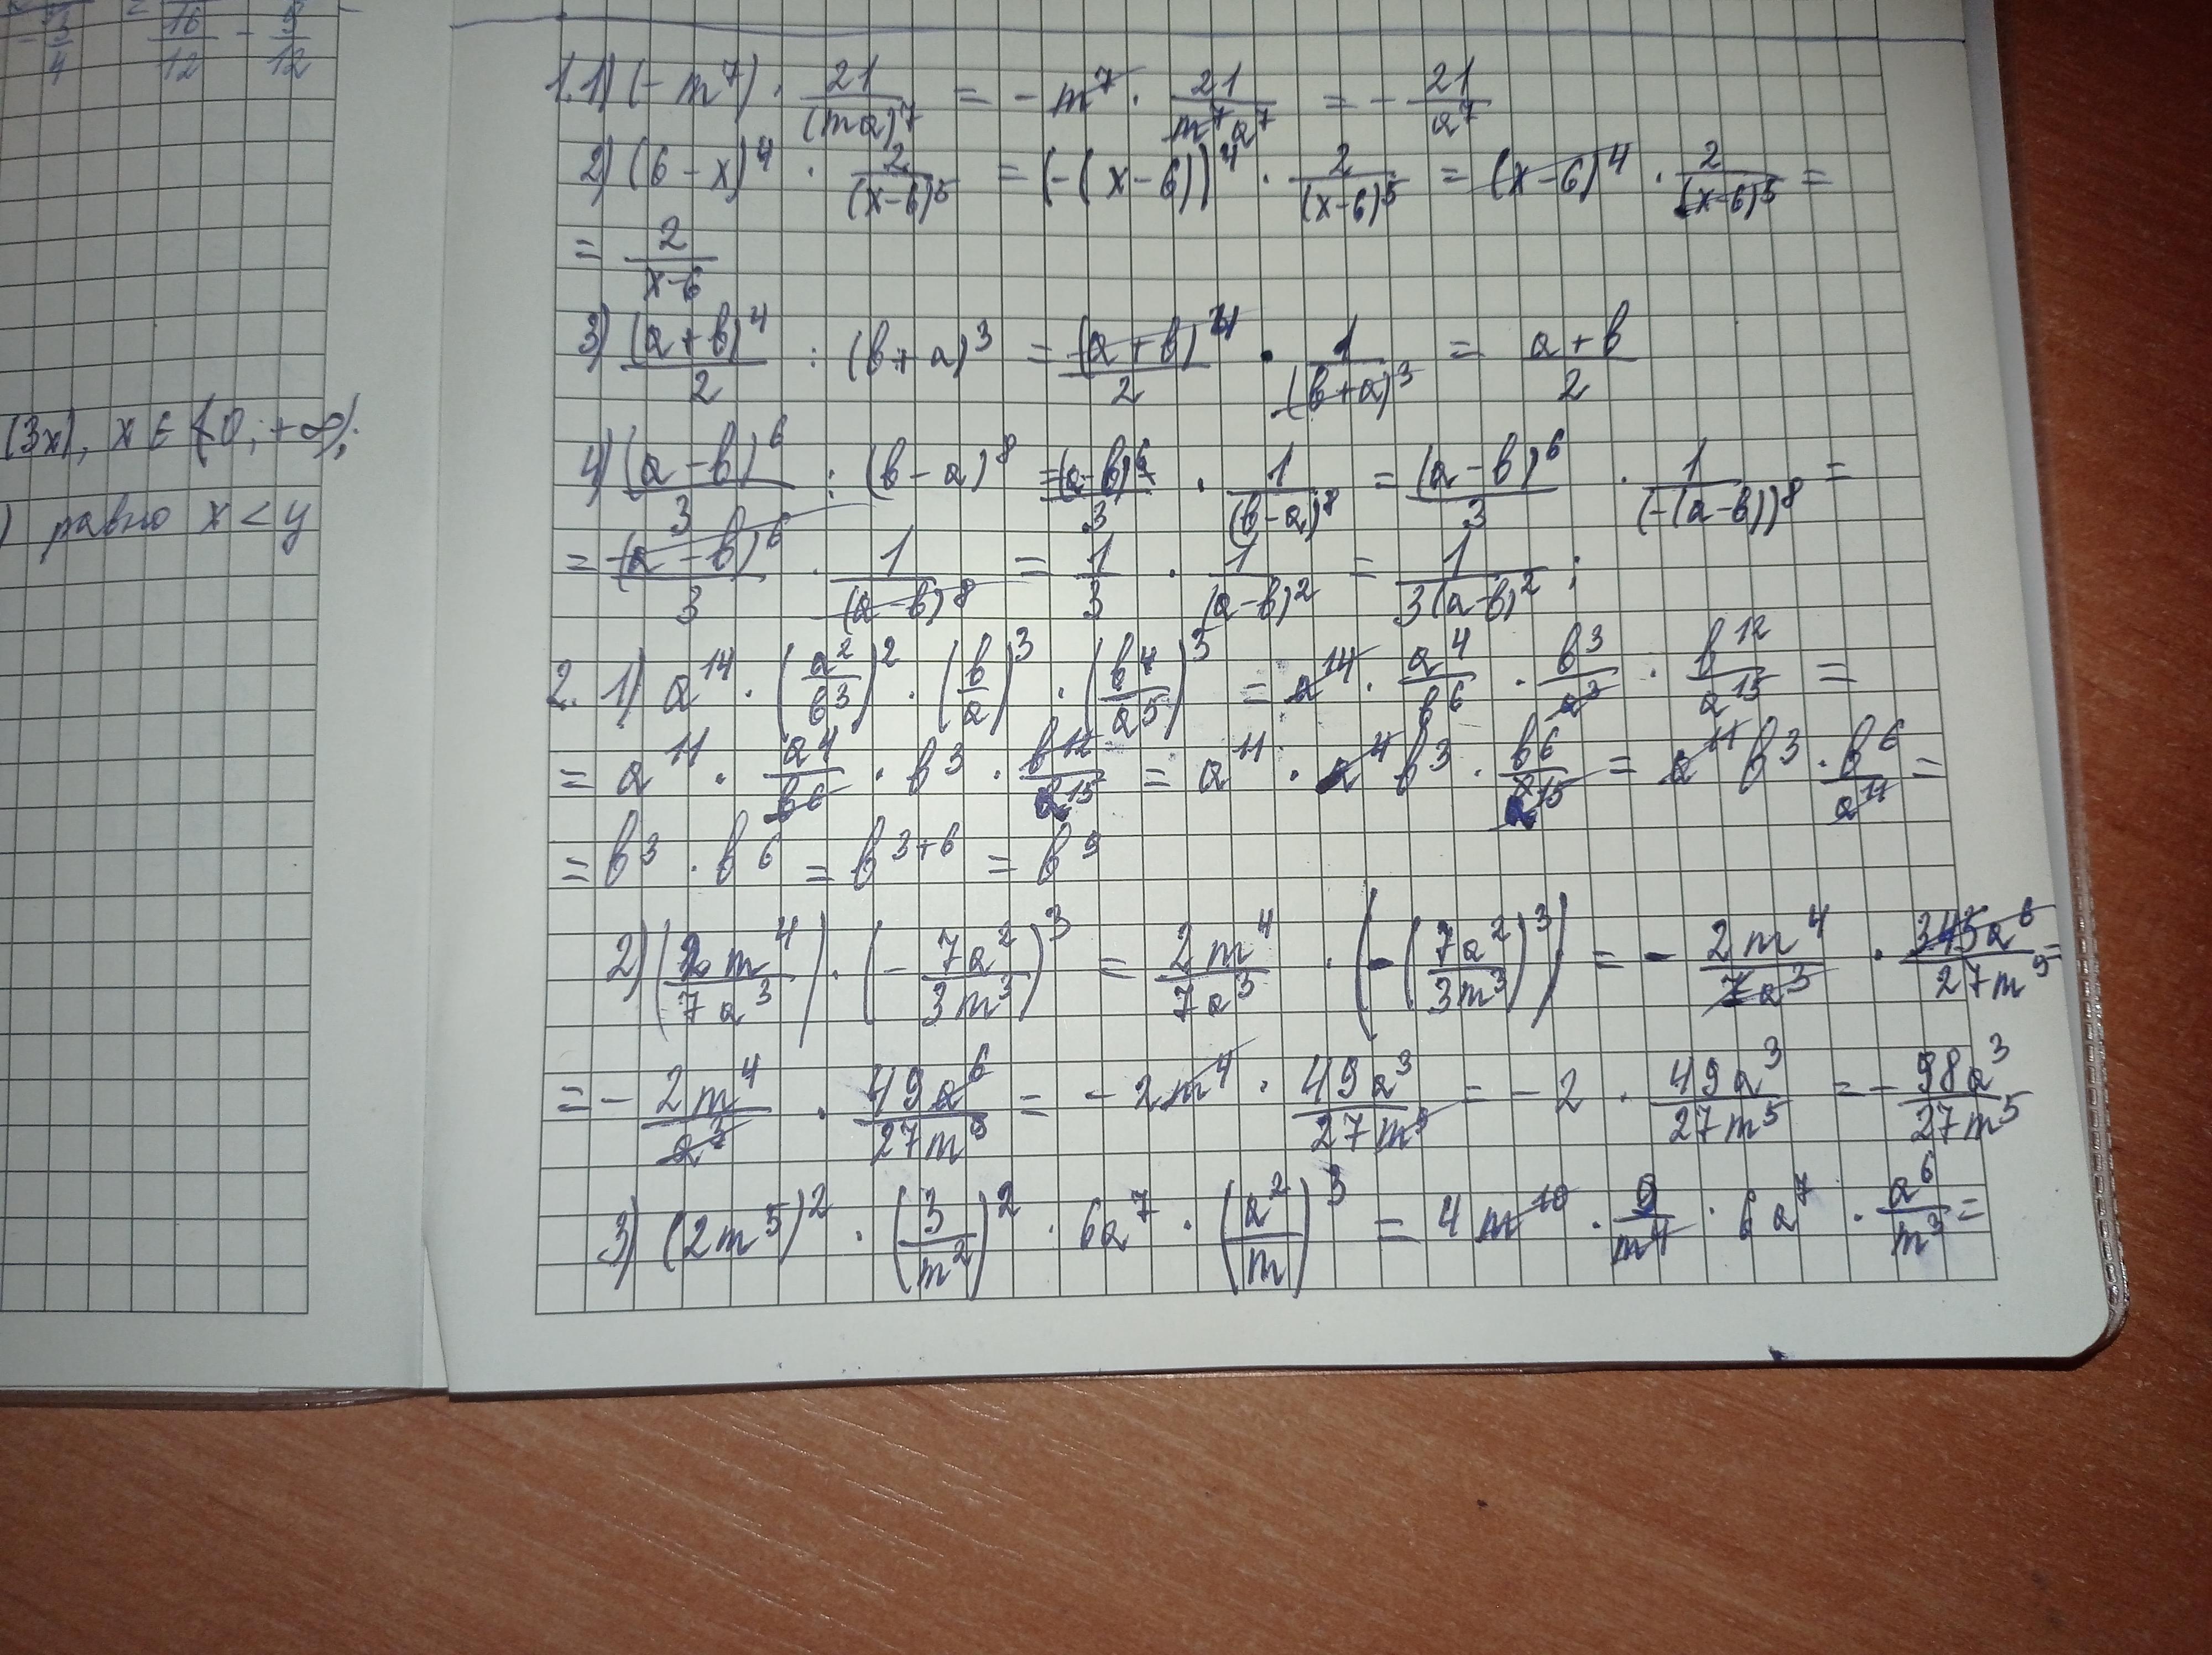 - 3/4 = 16/12 - 9/12
(3x), x ∈ (0; +∞);
) равно x < y
1. 1) (-m⁷) · 21/(ma)⁷ = -m⁷ · 21/(m⁷a⁷) = - 21/a⁷
2) (6-x)⁴ · 2/(x-6)⁵ = (-(x-6))⁴ · 2/(x-6)⁵ = (x-6)⁴ · 2/(x-6)⁵ =
= 2/(x-6)
3) (a+b)⁴/2 : (b+a)³ = (a+b)⁴/2 · 1/(b+a)³ = (a+b)/2
4) (a-b)⁶/3 : (b-a)⁸ = (a-b)⁶/3 · 1/(b-a)⁸ = (a-b)⁶/3 · 1/(-(a-b))⁸ =
= (a-b)⁶/3 · 1/(a-b)⁸ = 1/3 · 1/(a-b)² = 1/(3(a-b)²);
2. 1) a¹⁴ · (a²/b³)² · (b/a)³ · (b⁴/a⁵)³ = a¹⁴ · a⁴/b⁶ · b³/a³ · b¹²/a¹⁵ =
= a¹¹ · a⁴/b⁶ · b³ · b¹²/a¹⁵ = a¹¹ · a⁴b³ · b⁶/a¹⁵ = a¹¹b³ · b⁶/a¹¹ =
= b³ · b⁶ = b³⁺⁶ = b⁹
2) (2m⁴/7a³) · (- 7a²/3m³)³ = 2m⁴/7a³ · (-(7a²/3m³)³) = - 2m⁴/7a³ · 343a⁶/27m⁹ =
= - 2m⁴/a³ · 49a⁶/27m⁹ = - 2m⁴ · 49a³/27m⁹ = - 2 · 49a³/27m⁵ = - 98a³/27m⁵
3) (2m⁵)² · (3/m²)² · 6a⁷ · (a²/m)³ = 4m¹⁰ · 9/m⁴ · 6a⁷ · a⁶/m³ =